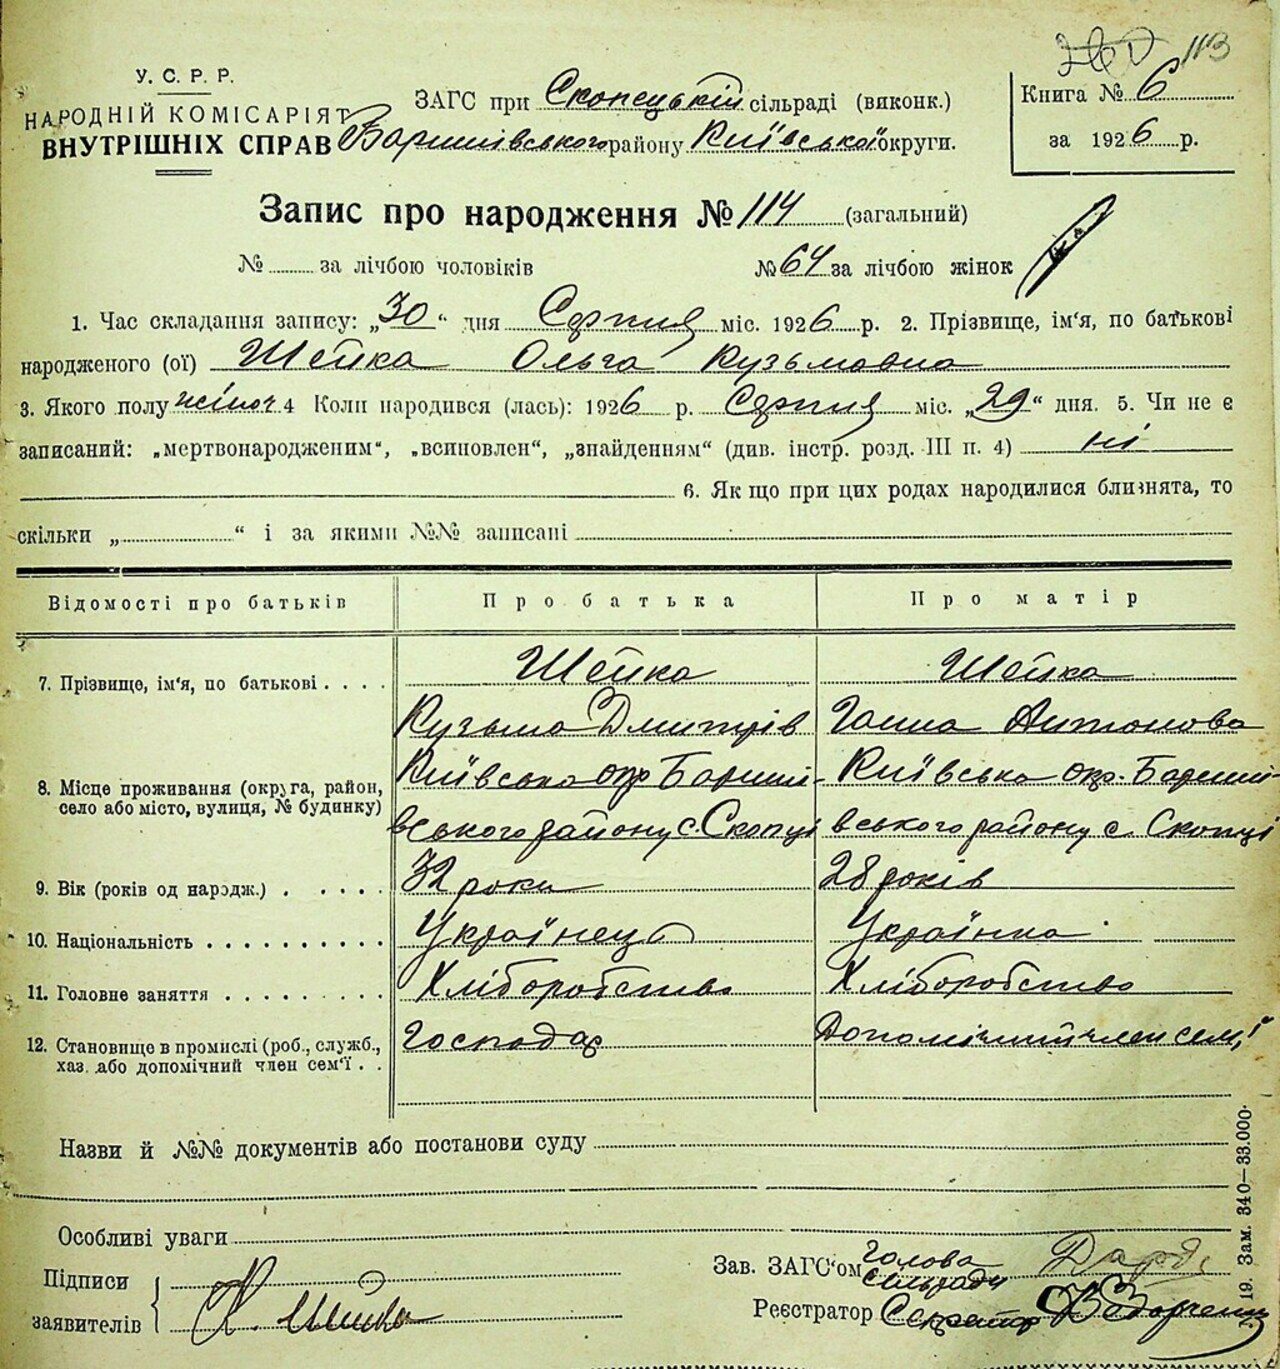 113
У. С. Р. Р.
НАРОДНІЙ КОМІСАРІЯТ
ВНУТРІШНІХ СПРАВ
ЗАГС при Скопецькій сільраді (виконк.)
Баришівського району Київської округи.
Книга № 6
за 1926 р.
Запис про народження № 114 (загальний)
№ за лічбою чоловіків № 64 за лічбою жінок
1. Час складання запису: „30“ дня Серпня міс. 1926 р. 2. Прізвище, ім'я, по батькові
народженого (ої) Шейка Ольга Кузьмовна
3. Якого полу жіноч. 4 Коли народився (лась): 1926 р. Серпня міс. „29“ дня. 5. Чи не є
записаний: „мертвонародженим“, „всиновлен“, „знайденням“ (див. інстр. розд. III п. 4) ні
6. Як що при цих родах народилися близнята, то
скільки „ “ і за якими №№ записані
Відомості про батьків Про батька Про матір
7. Прізвище, ім'я, по батькові . . . . Шейка Шейка
Кузьма Дмитрів Ганна Антонова
8. Місце проживання (округа, район, село або місто, вулиця, № будинку) Київська окр Бариші- Київська окр. Бариші-
вського району с. Скопці вського району с. Скопці
9. Вік (років од народж.) . . . . . 32 роки 28 років
10. Національність . . . . . . . . . . Українець Українка
11. Головне заняття . . . . . . . . . Хліборобство Хліборобство
12. Становище в промислі (роб., служб., Господар Допомічний член семї
хаз. або допомічний член сем'ї . .
Назви й №№ документів або постанови суду
Особливі уваги
Підписи
заявителів К. Шейка
Зав. ЗАГС'ом Голова
сільради
Реєстратор Секретар
19. Зам. 340—33.000·